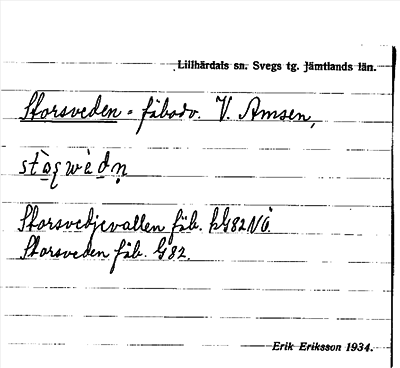 Lillhärdals sn. Svegs tg. Jämtlands län.
Storsveden - fäbodv. V. Amsen,
stọ̀ʂwèdn̥
Storsvedjevallen fäb. kG82NÖ.
Storsveden fäb. G82.
Erik Eriksson 1934.